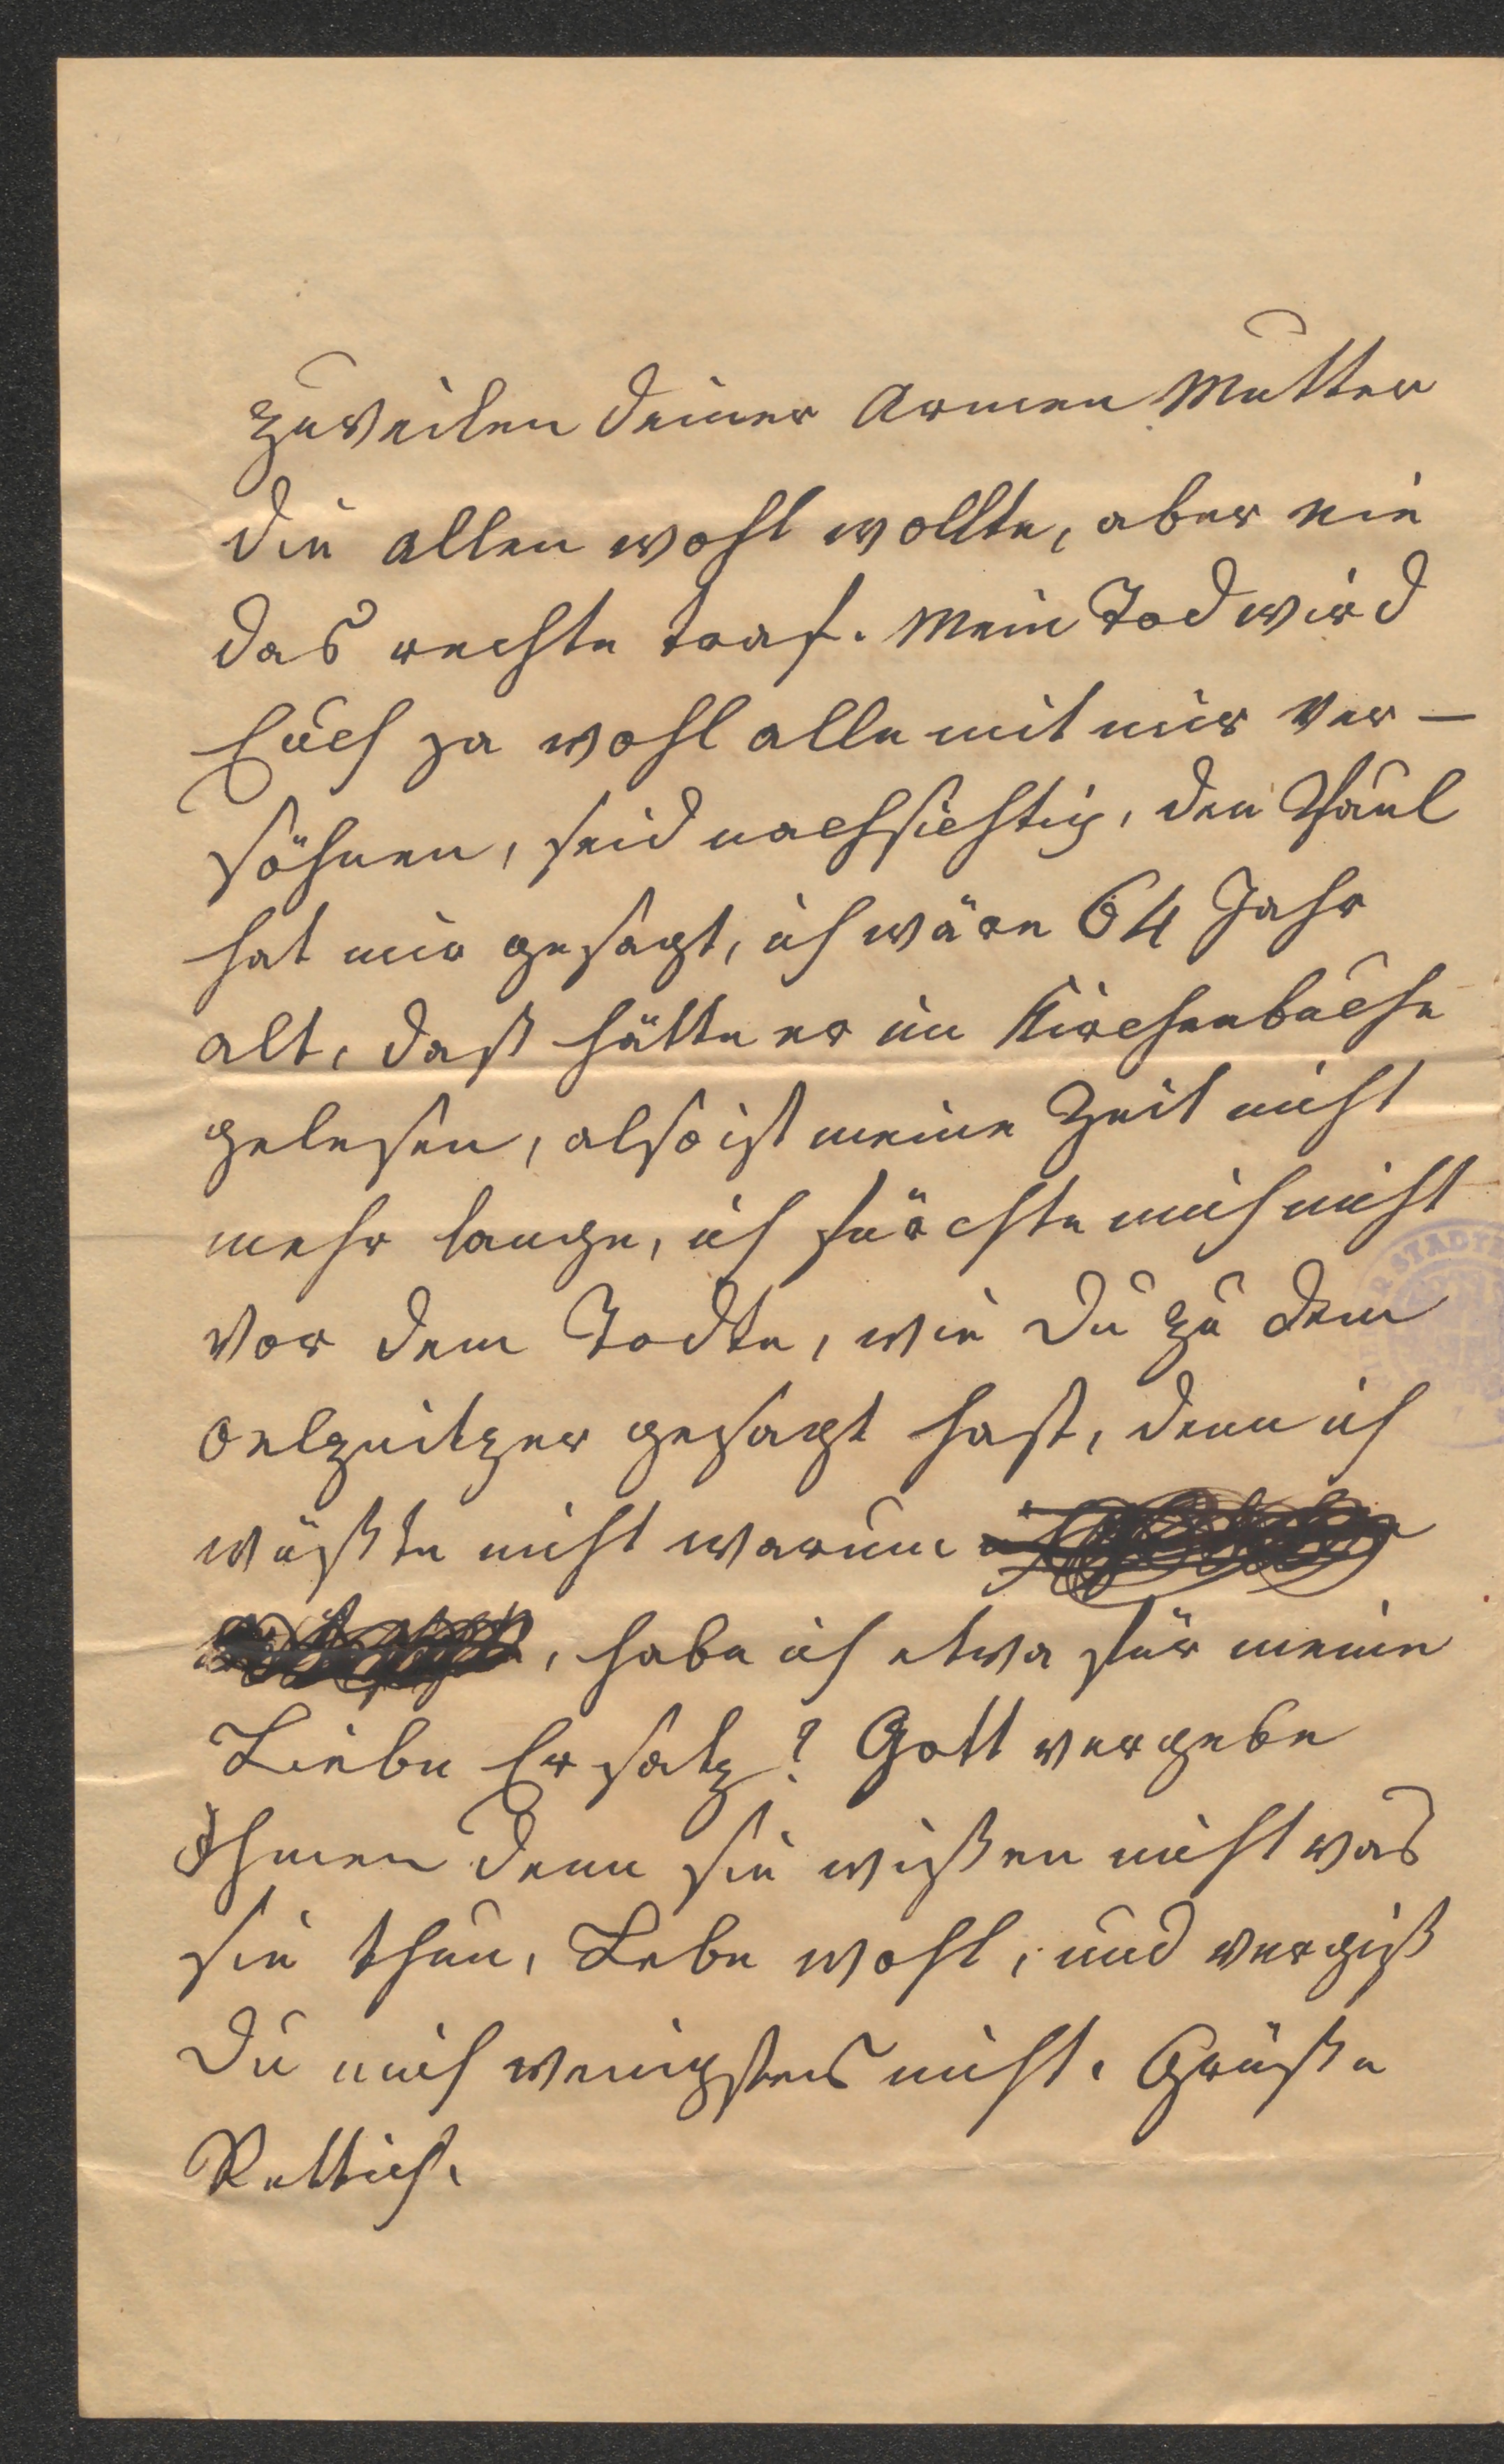 zuweilen deiner armen Mutter
die allen wohl wollte, aber nie
das rechte traf. Mein Tod wird
Euch ja wohl alle mit mir ver-
söhnen, seid nachsichtig, den Paul
hat mir gesagt, ich wäre 64 Jahr
alt, daß hätte er im Kirchenbuche
gelesen, also ist meine Zeit nicht
mehr lange, ich fürchte mich nicht
vor dem Todte, wie Du zu dem
Oelzeitzer gesagt hast, denn ich
wüßte nicht warum
, habe ich etwa für meine
Liebe Ersatz? Gott vergebe
Ihnen denn sie wißen nicht was
sie thun, Lebe wohl, und vergiß
Du mich wenigstens nicht. Grüße
Rettich.
STADT